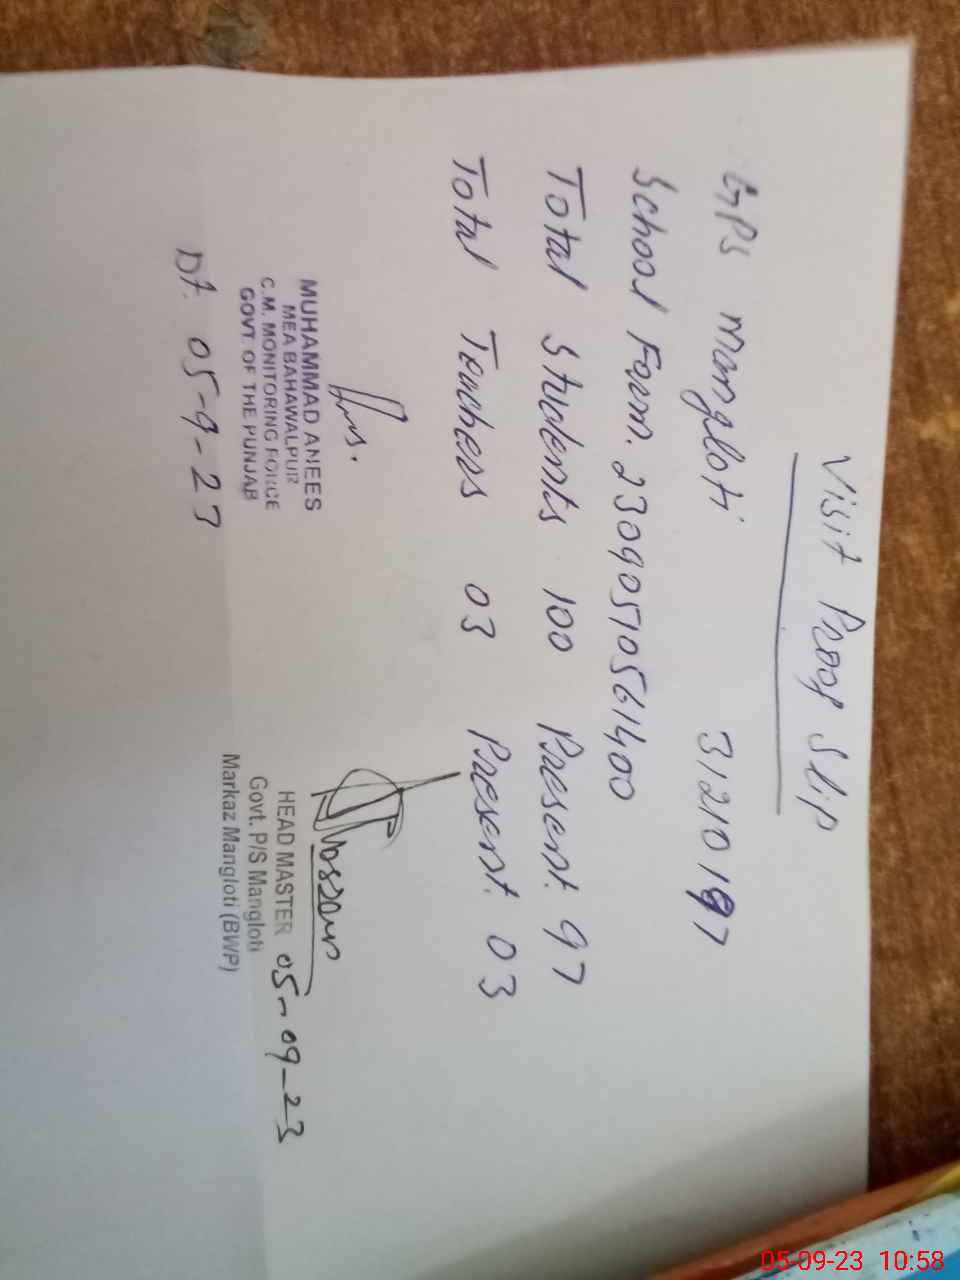 Visit Proof Slip
GPS Mangloti 31210197
School Facm. 23090510561400
Total Students 100 Present. 97
Total Teachers 03 Present. 03
MUHAMMAD ANEES
MEA BAHAWALPUR
C.M. MONITORING FORCE
GOVT. OF THE PUNJAB
Dt. 05-9-23
HEAD MASTER 05-09-23
Govt. P/S Mangloti
Markaz Mangloti (BWP)
05-09-23 10:58